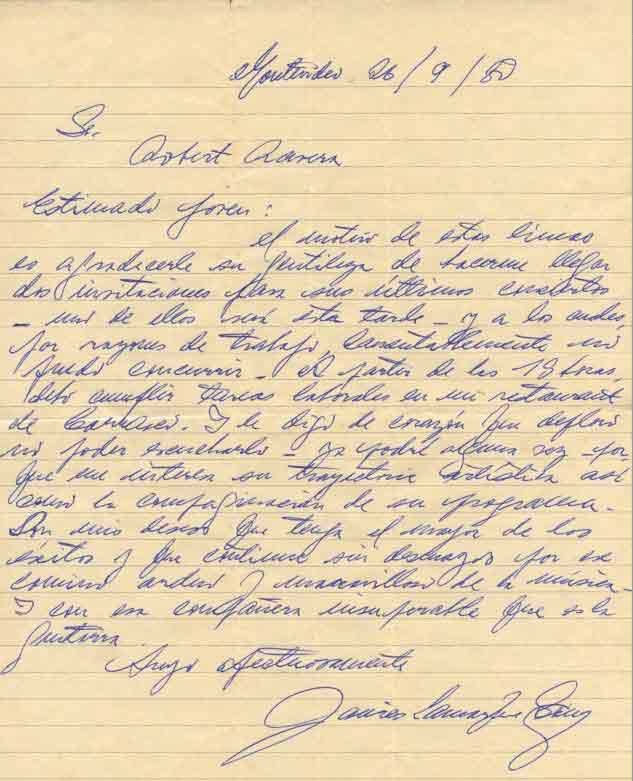 Montevideo 26/9/80
Sr.
Robert Ravera
Estimado joven:
el motivo de estas líneas
es agradecerle su gentileza de hacerme llegar
dos invitaciones para sus últimos conciertos
- uno de ellos será esta tarde - y a los cuales,
por razones de trabajo, lamentablemente no
puedo concurrir - A partir de las 19 horas,
debo cumplir tareas laborales en un restaurant
de Carrasco. Y le digo de corazón que deploro
no poder escucharlo - ya podré alguna vez - por
que me interesa su trayectoria artística así
como la compaginación de su programa.
Son mis deseos que tenga el mayor de los
exitos y que continue sin desmayos por ese
camino arduo y maravilloso de la música.
Y con esa compañera insuperable que es la
guitarra.
Suyo afectuosamente